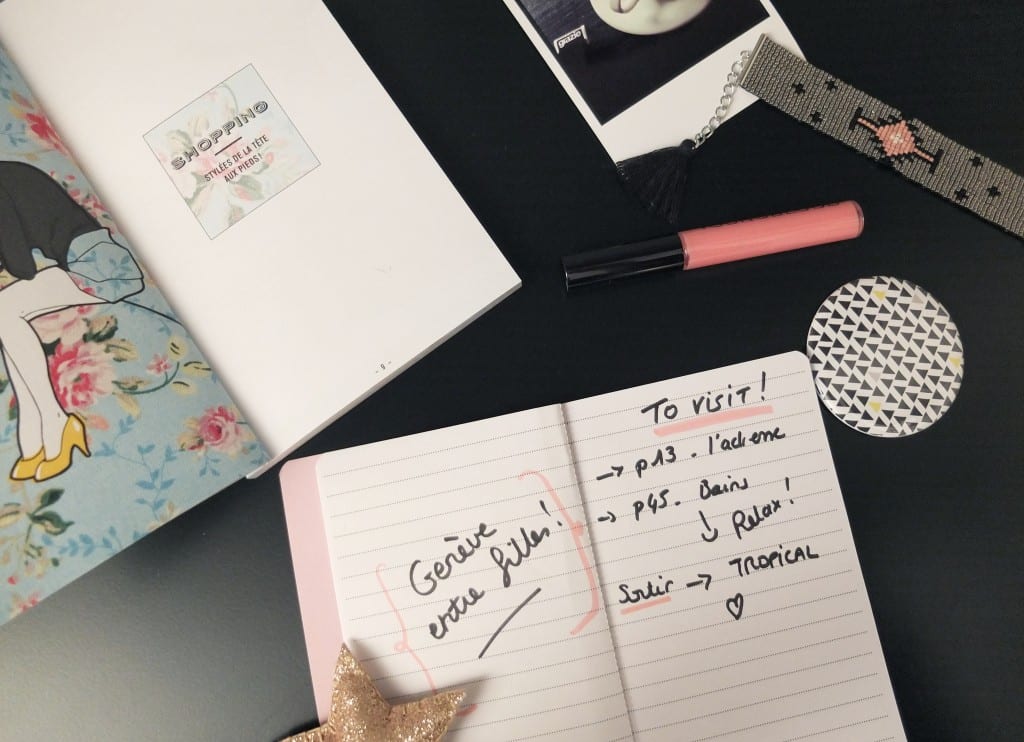 SHOPPING
STYLÉES DE LA TÊTE
AUX PIEDS!
- 9 -
Genève
entre filles!
To visit!
→ p13. l'adresse
→ p45. Bains
↓ Relax!
Sortir → TROPICAL
♡